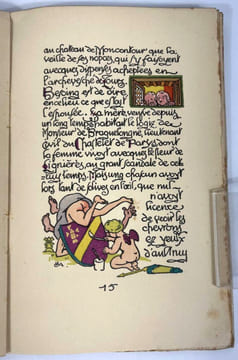 au chateau de Moncontour que la
veille de ses nopces, qui se faisoyent
avecques dispenses acheptées en
l'archevesché de Tours.
Besoing est de dire
en ce lieu ce que estoit
l'espousée. Sa mère, veufve depuis
ung long temps, habitait le logis de
Monsieur de Braguelongne, lieutenant
civil du Chastelet de Paris dont
la femme vivoit avecques le sieur de
Lignières, au grant scandale de cet-
tuy temps. Mais ung chascun avoyt
lors tant de solives en l'œil, que nul
n'avoyt
licence
de veoir les
chevrons
es yeulx
d'aultruy
15